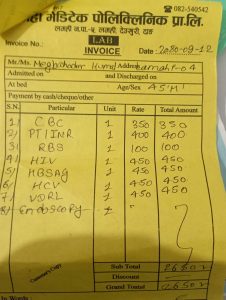 ही मेडिटेक पोलिक्लिनिक प्रा.लि.
लमही न.पा.-५ लमही, देउखुरी, दाङ
☎ 082-540542
Invoice No.:
LAB
INVOICE
Date : 2080-09-12
Mr./Ms. Address
Admitted on and Discharged on
At bed Age/Sex 45 M
Payment by cash/cheque/other
S.N. Particular Unit Rate Total Amount
1 CBC 1 350 350
2 PT/INR 1 400 400
3 RBS 1 100 100
4 HIV 1 450 450
5 HBSAg 1 450 450
6 HCV 1 450 450
7 VDRL 1 450 450
8 Endoscopy
Customer's Copy
Sub Total
Discount
Grand Total
In Words